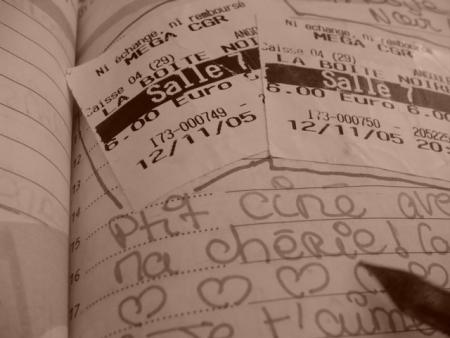 Ni échange, ni remboursé
MEGA CGR
Caisse 04 (29)
LA BOTTE NOIR
Salle 7
6.00 Euro
173-000749 -
12/11/05
Ni échange, ni remboursé
MEGA CGR
Caisse 04 (29) ANGOUL
LA BOTTE NOIRE
Salle 7
6.00 Euro 6.00
173-000750 - 205225
12/11/05 20:
12
13
14
ptit ciné ave
15
ma chérie!
16
17
t'aime